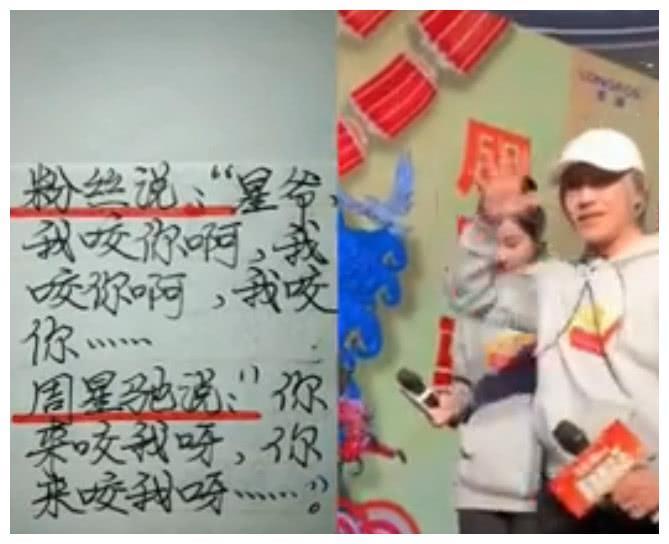 粉丝说："星爷，
我咬你啊，我
咬你啊，我咬
你……
周星驰说："你
来咬我呀，你
来咬我呀……"。